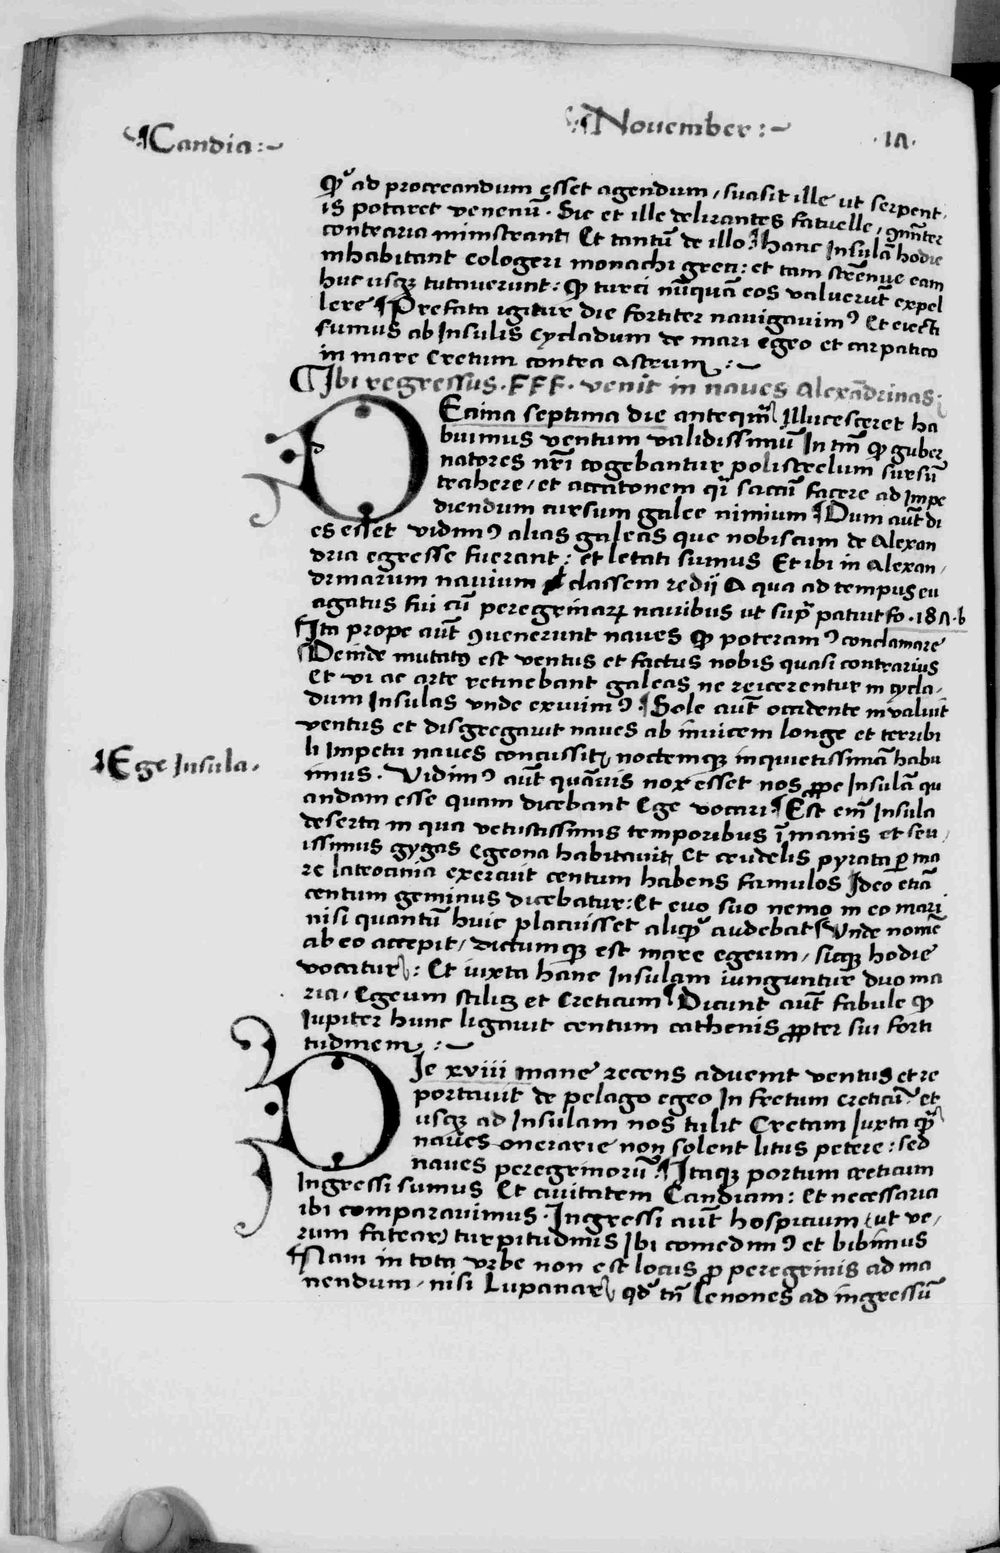 ¶Candia:~
¶November:~
·17·
qꝫ ad procreandum esset agendum, suasit ille ut serpent,
is potaret venenū. Sic et ille delirantes fatuelle, ꝯmūter
contraria ministrant Et tantū de illo ¶hanc Insulā hodie
inhabitant cologeri monachi greci: et tam strēnue eam
huc usqꝫ tutaverunt: qꝫ turci nūquā eos valuerūt expel
lere ¶Prefata igitur die fortiter navigavimꝰ Et evecti
sumus ab Insulis cycladum de mari egeo et carpatico
in mare Cretum contra Astrum :~
¶Ibi regressus .FFF. venit in naves Alexādrinas:
DEcima septima die anteqm̄ illucesceret ha
buimus ventum validissimū In tm̄ qꝫ guber
natores nr̄i cogebantur polistrelum sursū
trahere, et accatonem qr̄ saccū facere ad impe
diendum cursum galee nimium ¶Dum aūt di
es esset vidimꝰ alias galeas que nobiscum de Alexan
dria egresse fuerant: et letati sumus Et ibi in Alexan,
drinarum navium classem redij A qua ad tempus eu
agatus fui cū peregrinaꝝ navibus ut supͣ patuit fo. 187. b
¶Ita prope aūt ꝯvenerunt naves qꝫ poteramꝰ conclamare
¶Deinde mutatꝰ est ventus et factus nobis quasi contrarius
Et vi ac arte retinebant galeas ne reicerentur in cycla,
dum Insulas unde exivimꝰ ¶Sole aūt occidente invaluit
ventus et disgregavit naves ab invicem longe et terribi
li impetu naves concussit, noctemqꝫ inquietissimā habu
¶Ege Insula.
imus. Vidimꝰ aūt quāvis nox esset nos ꝓpe Insulā qu
andam esse quam dicebant Ege vocari ¶Est em̄ Insula
deserta in qua vetustissimis temporibus īmanis et sev,
issimus gygas Egeona habitavit, Et crudelis pyrata ꝑ ma
re latrocinia exercuit centum habens famulos Ideo etiā
centum geminus dicebatur: Et evo suo nemo in eo mari
nisi quantū huic placuisset aliqͥ audebat ¶Unde nomē
ab eo accepit, dictumqꝫ est mare egeum, sicqꝫ hodie
vocatur: Et iuxta hanc Insulam iunguntur duo ma
ria, Egeum scilicꝫ et Creticum ¶Dicunt aūt fabule qꝫ
Iupiter hunc ligavit centum cathenis ꝓpter sui forti
tudinem :~
DIe xviii mane recens advenit ventus et re
portavit de pelago egeo In fretum creticū: et
usqꝫ ad Insulam nos tulit Cretam Iuxta qͣ
naves onerarie non solent litus petere: sed
naves peregrinorū ¶Itaqꝫ portum creticum
Ingressi sumus Et civitatem Candiam: Et necessaria
ibi comparavimus. Ingressi aūt hospicium (ut ve,
rum fatear) turpitudinis Ibi comedimꝰ et bibimus
¶Nam in tota urbe non est locus ꝓ peregrinis ad ma
nendum, nisi Lupanar, qd̄ tn̄ lenones ad ingressū